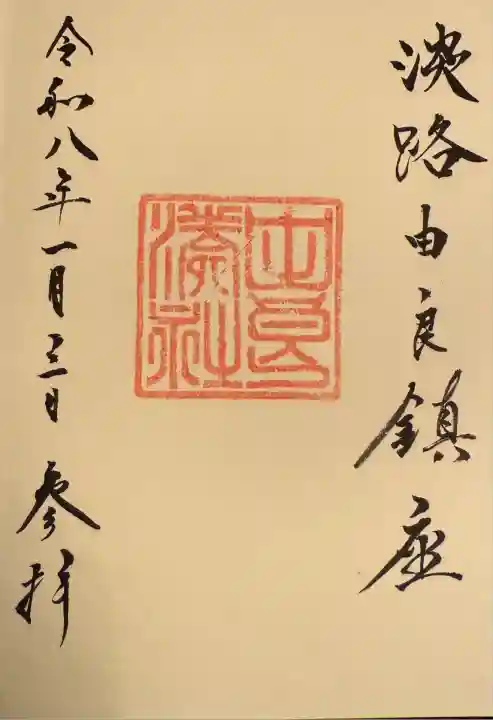 淡路由良鎮座
由良湊社
令和八年一月三日 参拝